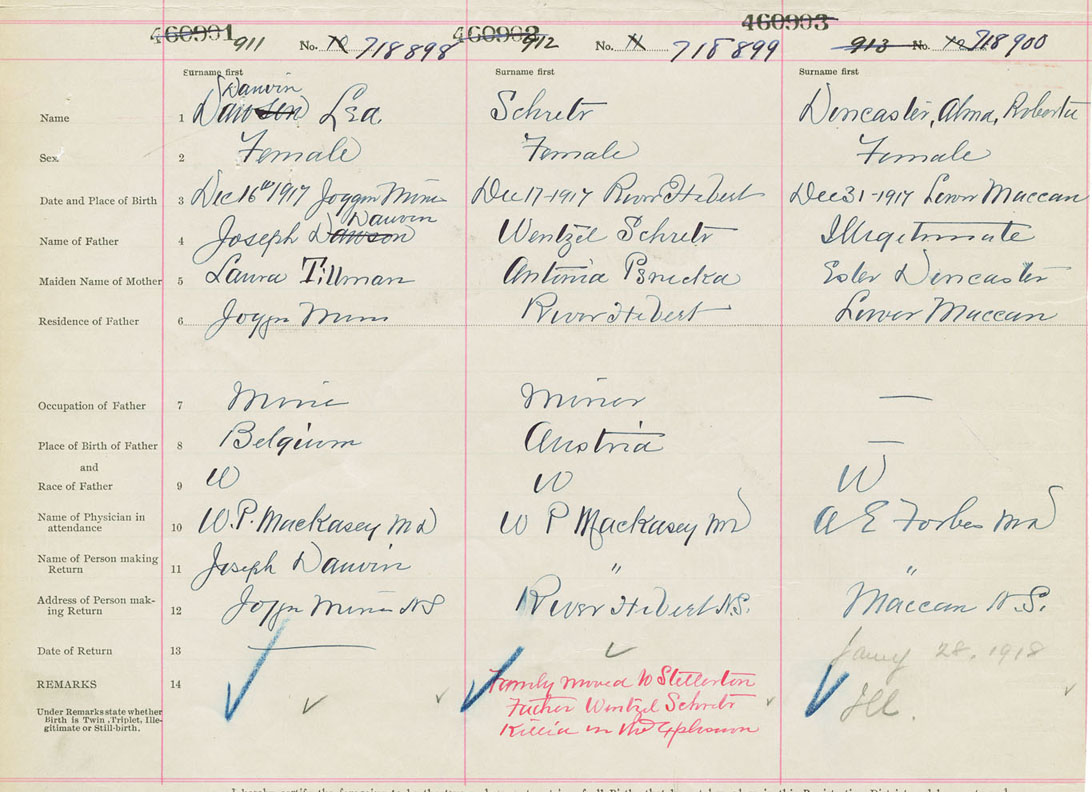 460901 460902 460903
911 No. 10 718898 912 No. 11 718899 913 No. 12 718900
Surname first Surname first Surname first
Dauvin
Name 1 Dawson Lea Schretr Doncaster, Alma, Roberta
Sex 2 Female Female Female
Date and Place of Birth 3 Dec 16th 1917 Joggin Mines Dec 17-1917 River Hebert Dec 31-1917 Lower Maccan
Dauvin
Name of Father 4 Joseph Dawson Wentzel Schretr Illigetimate
Maiden Name of Mother 5 Laura Tillman Antonia Ester Doncaster
Residence of Father 6 Joggin Mines River Hebert Lower Maccan
Occupation of Father 7 Minor —
Place of Birth of Father 8 Belgium Austria —
and
Race of Father 9 W W W
Name of Physician in
attendance 10 W.P. Mackasey MD W P Mackasey MD A E Forbes MD
Name of Person making
Return 11 Joseph Dauvin " "
Address of Person mak-
ing Return 12 Joggin Mines NS River Hebert N.S. Maccan N.S.
Date of Return 13 — Jany 28, 1918
REMARKS 14 Family moved to Stellerton
Under Remarks state whether Father Wentzel Schretr Ill.
Birth is Twin, Triplet, Ille-
gitimate or Still-birth. Killid in the Explosion